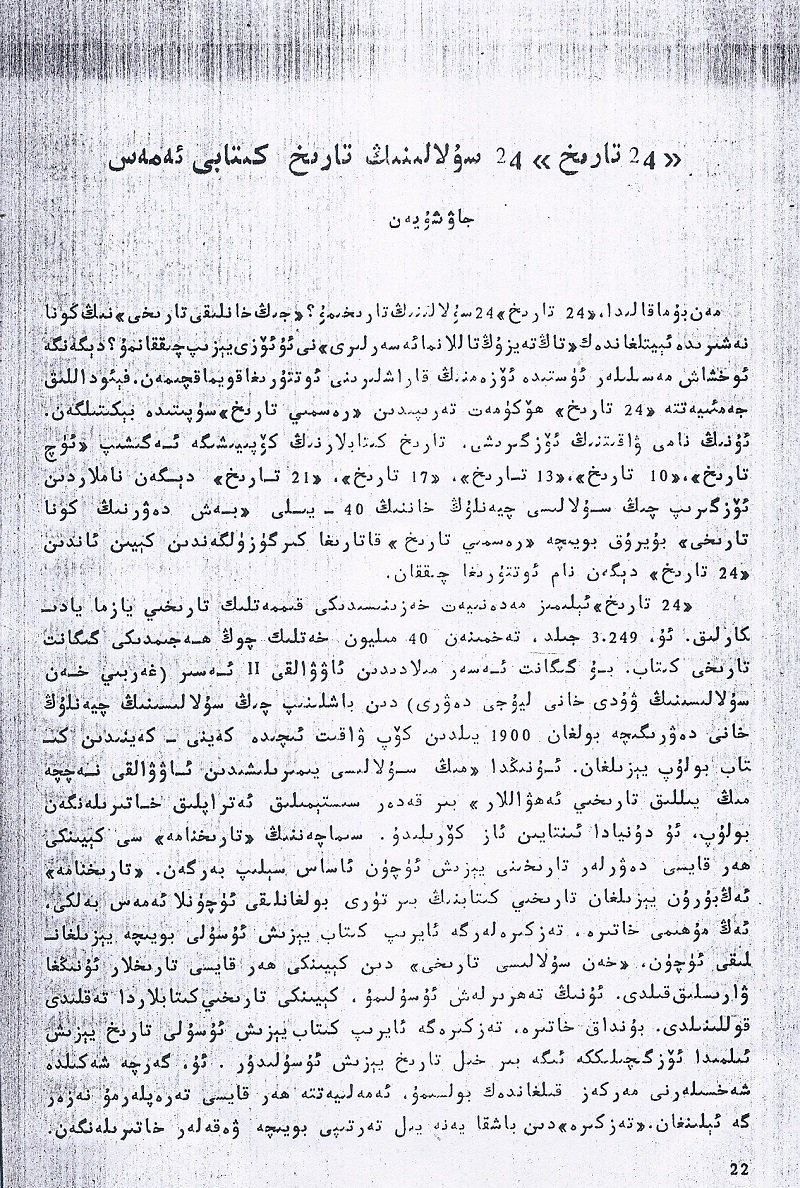 «24 تارىخ» 24 سۇلالىنىڭ تارىخ كىتابى ئەمەس
جاۋشۇيەن
مەن بۇ ماقالىدا، «24 تارىخ» 24 سۇلالىنىڭ تارىخىمۇ؟ «جىڭ خانلىقى تارىخى» نىڭ كونا
نەشىرىدە ئېيتلغاندەك «تاڭ تەيزۇڭ تاللانما ئەسەرلىرى» نى ئۇ ئۆزى يېزىپ چىققانمۇ؟ دېگەنگە
ئوخشاش مەسىلىلەر ئۈستىدە ئۆزەمنىڭ قاراشلىرىنى ئوتتۇرىغا قويماقچىمەن. فېئوداللىق
جەمئىيەتتە «24 تارىخ» ھۆكۈمەت تەرىپىدىن «رەسمىي تارىخ» سۈپىتىدە بېكىتىلگەن.
ئۇنىڭ نامى ۋاقىتنىڭ ئۆزگىرىشى، تارىخ كىتابلارنىڭ كۆپىيىشىگە ئەگىشىپ «ئۈچ
تارىخ»، «10 تارىخ»، «13 تارىخ»، «17 تارىخ»، «21 تارىخ» دېگەن ناملاردىن
ئۆزگىرىپ چىڭ سۇلالىسى چيەنلۇڭ خاننىڭ 40 - يىلى «بەش دەۋرنىڭ كونا
تارىخى» بۇيرۇق بويىچە «رەسمىي تارىخ» قاتارىغا كىرگۈزۈلگەندىن كېيىن ئاندىن
«24 تارىخ» دېگەن نام ئوتتۇرىغا چىققان.
«24 تارىخ» ئېلىمىز مەدەنىيەت خەزىنىسىدىكى قىممەتلىك تارىخىي يازما يادىـ
كارلىق. ئۇ، 3.249 جىلد، تەخمىنەن 40 مىليون خەتلىك چوڭ ھەجىمدىكى گىگانت
تارىخى كىتاب. بۇ گىگانت ئەسەر مىلادىدىن ئاۋۋالقى II ئەسىر (غەربىي خەن
سۇلالىسىنىڭ ۋۇدى خانى ليۇجى دەۋرى) دىن باشلىنىپ چىڭ سۇلالىسىنىڭ چيەنلۇڭ
خانى دەۋرىگىچە بولغان 1900 يىلدىن كۆپ ۋاقىت ئىچىدە كەينى - كەينىدىن كىـ
تاب بولۇپ يېزىلغان. ئۇنىڭدا «مىڭ سۇلالىسى يىمىرىلىشىدىن ئاۋۋالقى نەچچە
مىڭ يىللىق تارىخىي ئەھۋاللار» بىر قەدەر سىستېمىلىق ئەتراپلىق خاتىرىلەنگەن
بولۇپ، ئۇ دۇنيادا ئىنتايىن ئاز كۆرىلىدۇ. سىماچەننىڭ «تارىخنامە» سى كېيىنكى
ھەر قايسى دەۋرلەر تارىخىنى يېزىش ئۈچۈن ئاساس سېلىپ بەرگەن. «تارىخنامە»
ئەڭ بۇرۇن يېزىلغان تارىخىي كىتابنىڭ بىر تۈرى بولغانلىقى ئۈچۈنلا ئەمەس بەلكى،
ئەڭ مۇھىمى خاتىرە، تەزكىرەلەرگە ئايرىپ كىتاب يېزىش ئۇسۇلى بويىچە يېزىلغانـ
لىقى ئۈچۈن، «خەن سۇلالىسى تارىخى» دىن كېيىنكى ھەر قايسى تارىخلار ئۇنىڭغا
ۋارىسلىق قىلدى. ئۇنىڭ تەھرىرلەش ئۇسۇلىمۇ، كېيىنكى تارىخىي كىتابلاردا تەقلىدى
قوللىنىلدى. بۇنداق خاتىرە، تەزكىرەگە ئايرىپ كىتاب يېزىش ئۇسۇلى تارىخ يېزىش
ئىلمىدا ئۆزگىچىلىككە ئىگە بىر خىل تارىخ يېزىش ئۇسۇلىدۇر. ئۇ، گەرچە شەكىلدە
شەخسىلەرنى مەركەز قىلغاندەك بولسىمۇ، ئەمەلىيەتتە ھەر قايسى تەرەپلەرمۇ نەزەر
گە ئېلىنغان. «تەزكىرە» دىن باشقا يەنە يىل تەرتىپى بويىچە ۋەقەلەر خاتىرىلەنگەن.
22